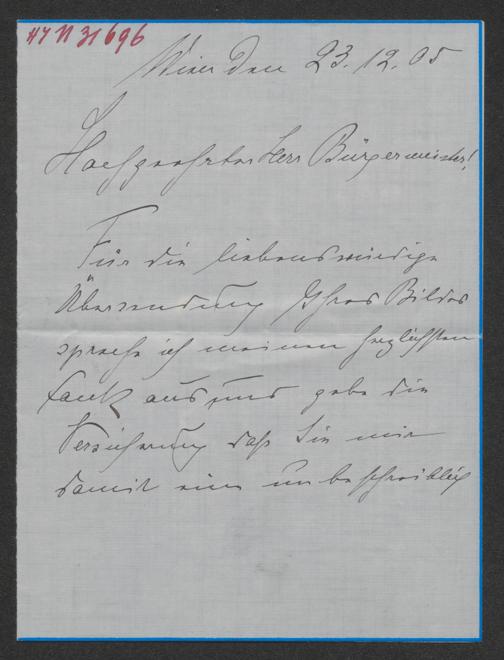 H I N 31696
Wien den 23.12.05
Hochgeehrter Herr Bürgermeister!
Für die liebenswürdige
Übersendung Ihres Bildes
spreche ich meinen herzlichsten
Dank aus und gebe die
Versicherung daß Sie mir
damit eine unbeschreiblich